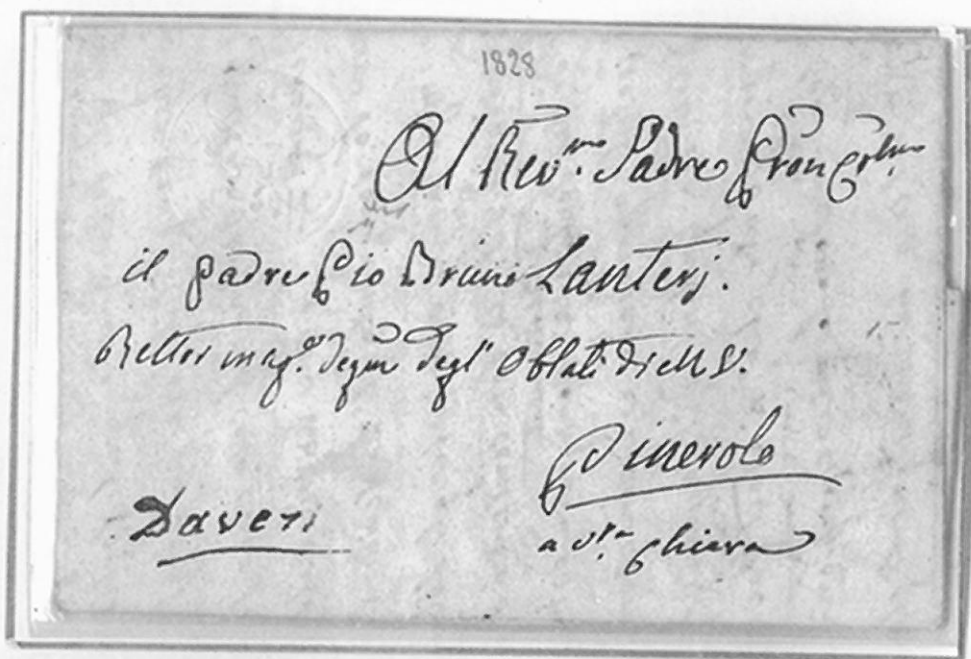 1828
Al Rev.mo Padre Pron Col.mo
il padre Pio Bruno Lanterj.
Rettor mag.e degli Oblati di M V.
Pinerolo
Daveri
a S.ta Chiara